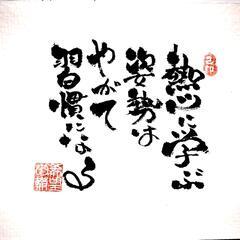 熱心に学ぶ
姿勢は
やがて
習慣になる